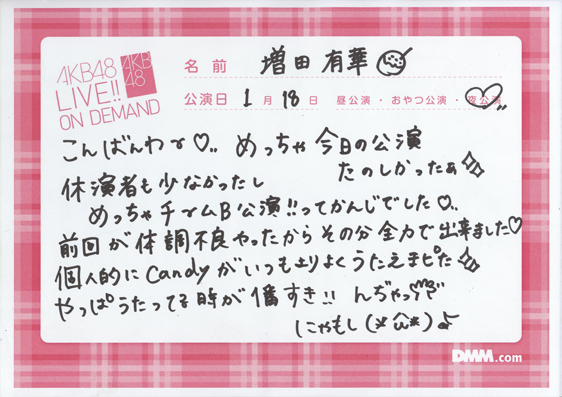 AKB48
LIVE!!
ON DEMAND
AKB
48
名前 増田有華
公演日 1月18日 昼公演・おやつ公演・夜公演
こんばんわ~♡.. めっちゃ今日の公演
たのしかったぁ
休演者も少なかったし
めっちゃチームB公演!!ってかんじでした♡..
前回が体調不良やったからその分全力で出来ました♡
個人的にcandyがいつもよりよくうたえまピた
やっぱうたってる時が1番すき!! んぢゃっ
にゃもし(*^ω^*)♪
DMM.com